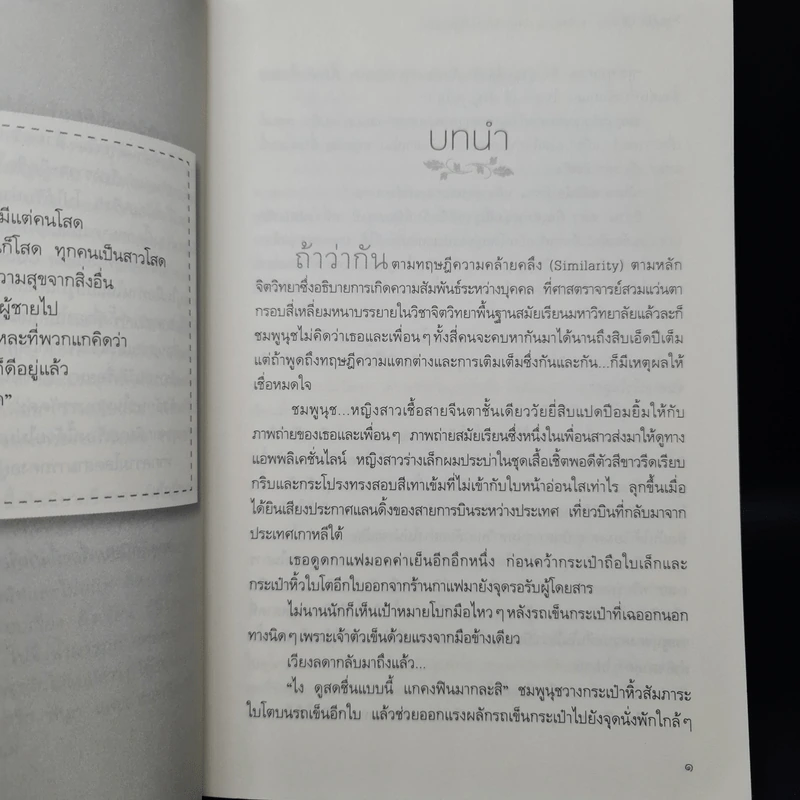 มีแต่คนโสด
ก็โสด ทุกคนเป็นสาวโสด
วามสุขจากสิ่งอื่น
ผู้ชายไป
หละที่พวกแกคิดว่า
ก็ดีอยู่แล้ว
บทนำ
ถ้าว่ากัน ตามทฤษฎีความคล้ายคลึง (Similarity) ตามหลัก
จิตวิทยาซึ่งอธิบายการเกิดความสัมพันธ์ระหว่างบุคคล ที่ศาสตราจารย์สวมแว่นตา
กรอบสี่เหลี่ยมหนาบรรยายในวิชาจิตวิทยาพื้นฐานสมัยเรียนมหาวิทยาลัยแล้วละก็
ชมพูนุชไม่คิดว่าเธอและเพื่อนๆ ทั้งสี่คนจะคบหากันมาได้นานถึงสิบเอ็ดปีเต็ม
แต่ถ้าพูดถึงทฤษฎีความแตกต่างและการเติมเต็มซึ่งกันและกัน...ก็มีเหตุผลให้
เชื่อหมดใจ
ชมพูนุช...หญิงสาวเชื้อสายจีนตาชั้นเดียววัยยี่สิบแปดปีอมยิ้มให้กับ
ภาพถ่ายของเธอและเพื่อนๆ ภาพถ่ายสมัยเรียนซึ่งหนึ่งในเพื่อนสาวส่งมาให้ดูทาง
แอพพลิเคชั่นไลน์ หญิงสาวร่างเล็กผมประบ่าในชุดเสื้อเชิ้ตพอดีตัวสีขาวรีดเรียบ
กริบและกระโปรงทรงสอบสีเทาเข้มที่ไม่เข้ากับใบหน้าอ่อนใสเท่าไร ลุกขึ้นเมื่อ
ได้ยินเสียงประกาศแลนดิ้งของสายการบินระหว่างประเทศ เที่ยวบินที่กลับมาจาก
ประเทศเกาหลีใต้
เธอดูดกาแฟมอคค่าเย็นอีกอึกหนึ่ง ก่อนคว้ากระเป๋าถือใบเล็กและ
กระเป๋าหิ้วใบโตอีกใบออกจากร้านกาแฟมายังจุดรอรับผู้โดยสาร
ไม่นานนักก็เห็นเป้าหมายโบกมือไหวๆ หลังรถเข็นกระเป๋าที่เฉออกนอก
ทางนิดๆ เพราะเจ้าตัวเข็นด้วยแรงจากมือข้างเดียว
เวียงลดากลับมาถึงแล้ว...
“ไง ดูสดชื่นแบบนี้ แกคงฟินมากละสิ” ชมพูนุชวางกระเป๋าหิ้วสัมภาระ
ใบโตบนรถเข็นอีกใบ แล้วช่วยออกแรงผลักรถเข็นกระเป๋าไปยังจุดนั่งพักใกล้ๆ
๑